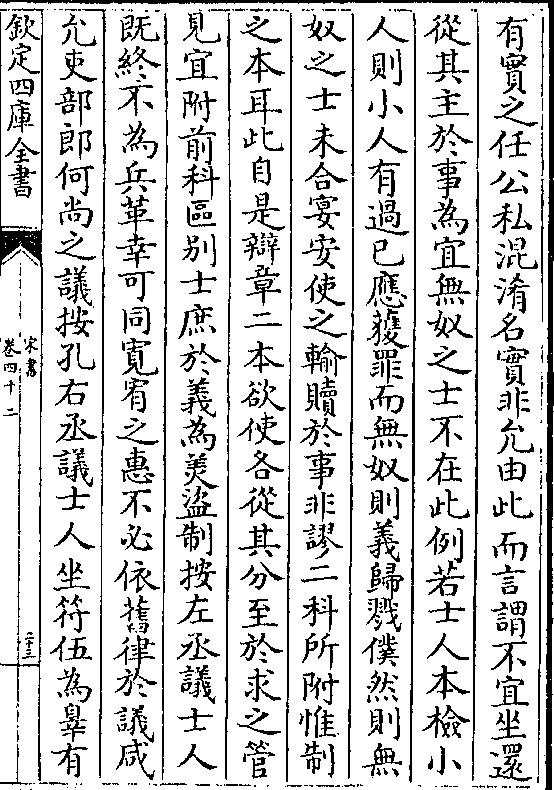 有實之任公私混淆名實非允由此而言謂不宜坐還
從其主於事為宜無奴之士不在此例若士人本檢小
人則小人有過已應獲罪而無奴則義歸戮僕然則無
奴之士未合宴安使之輸贖於事非謬二科所附惟制
之本耳此自是辯章二本欲使各從其分至於求之管
見宜附前科區别士庶於義為美盜制按左丞議士人
既終不為兵革幸可同寛宥之惠不必依舊律於議咸
允吏部郎何尚之議按孔右丞議士人坐符伍為辠有
欽定四庫全書
宋書
卷四十二
二十三